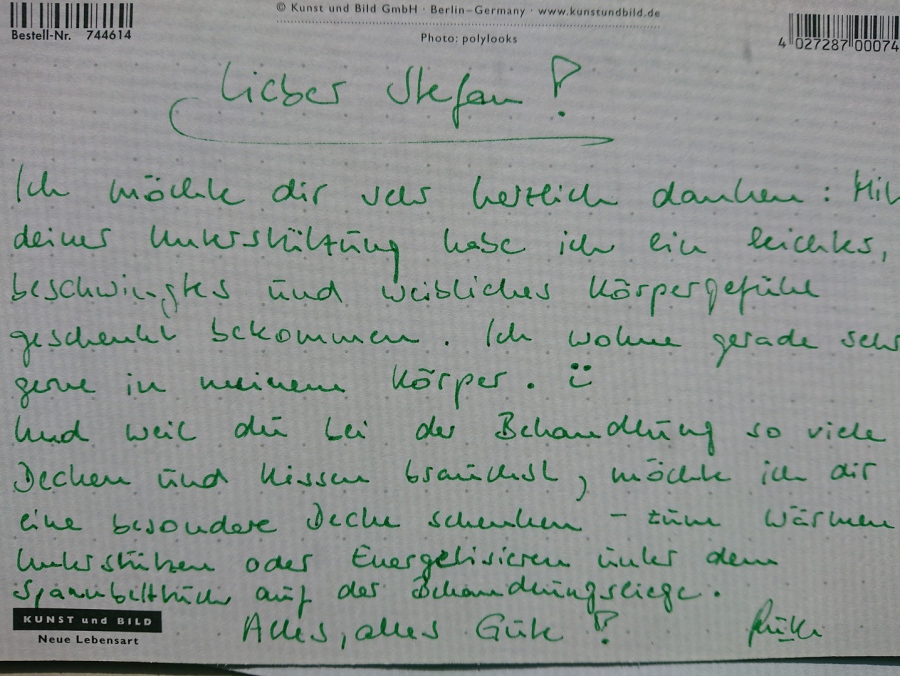 © Kunst und Bild GmbH · Berlin–Germany · www.kunstundbild.de
Bestell-Nr. 744614
Photo: polylooks
4 027287 00074
Lieber Stefan!
Ich möchte dir sehr herzlich danken: Mit
deiner Unterstützung habe ich ein leichtes,
beschwingtes und weibliches Körpergefühl
geschenkt bekommen. Ich wohne gerade sehr
gerne in meinem Körper. ü
Und weil du bei der Behandlung so viele
Decken und Kissen brauchst, möchte ich dir
eine besondere Decke schenken – zum Wärmen
Unterstützen oder Energetisieren unter dem
Spannbetttuch auf der Behandlungsliege.
KUNST und BILD
Neue Lebensart
Alles, alles Gute!